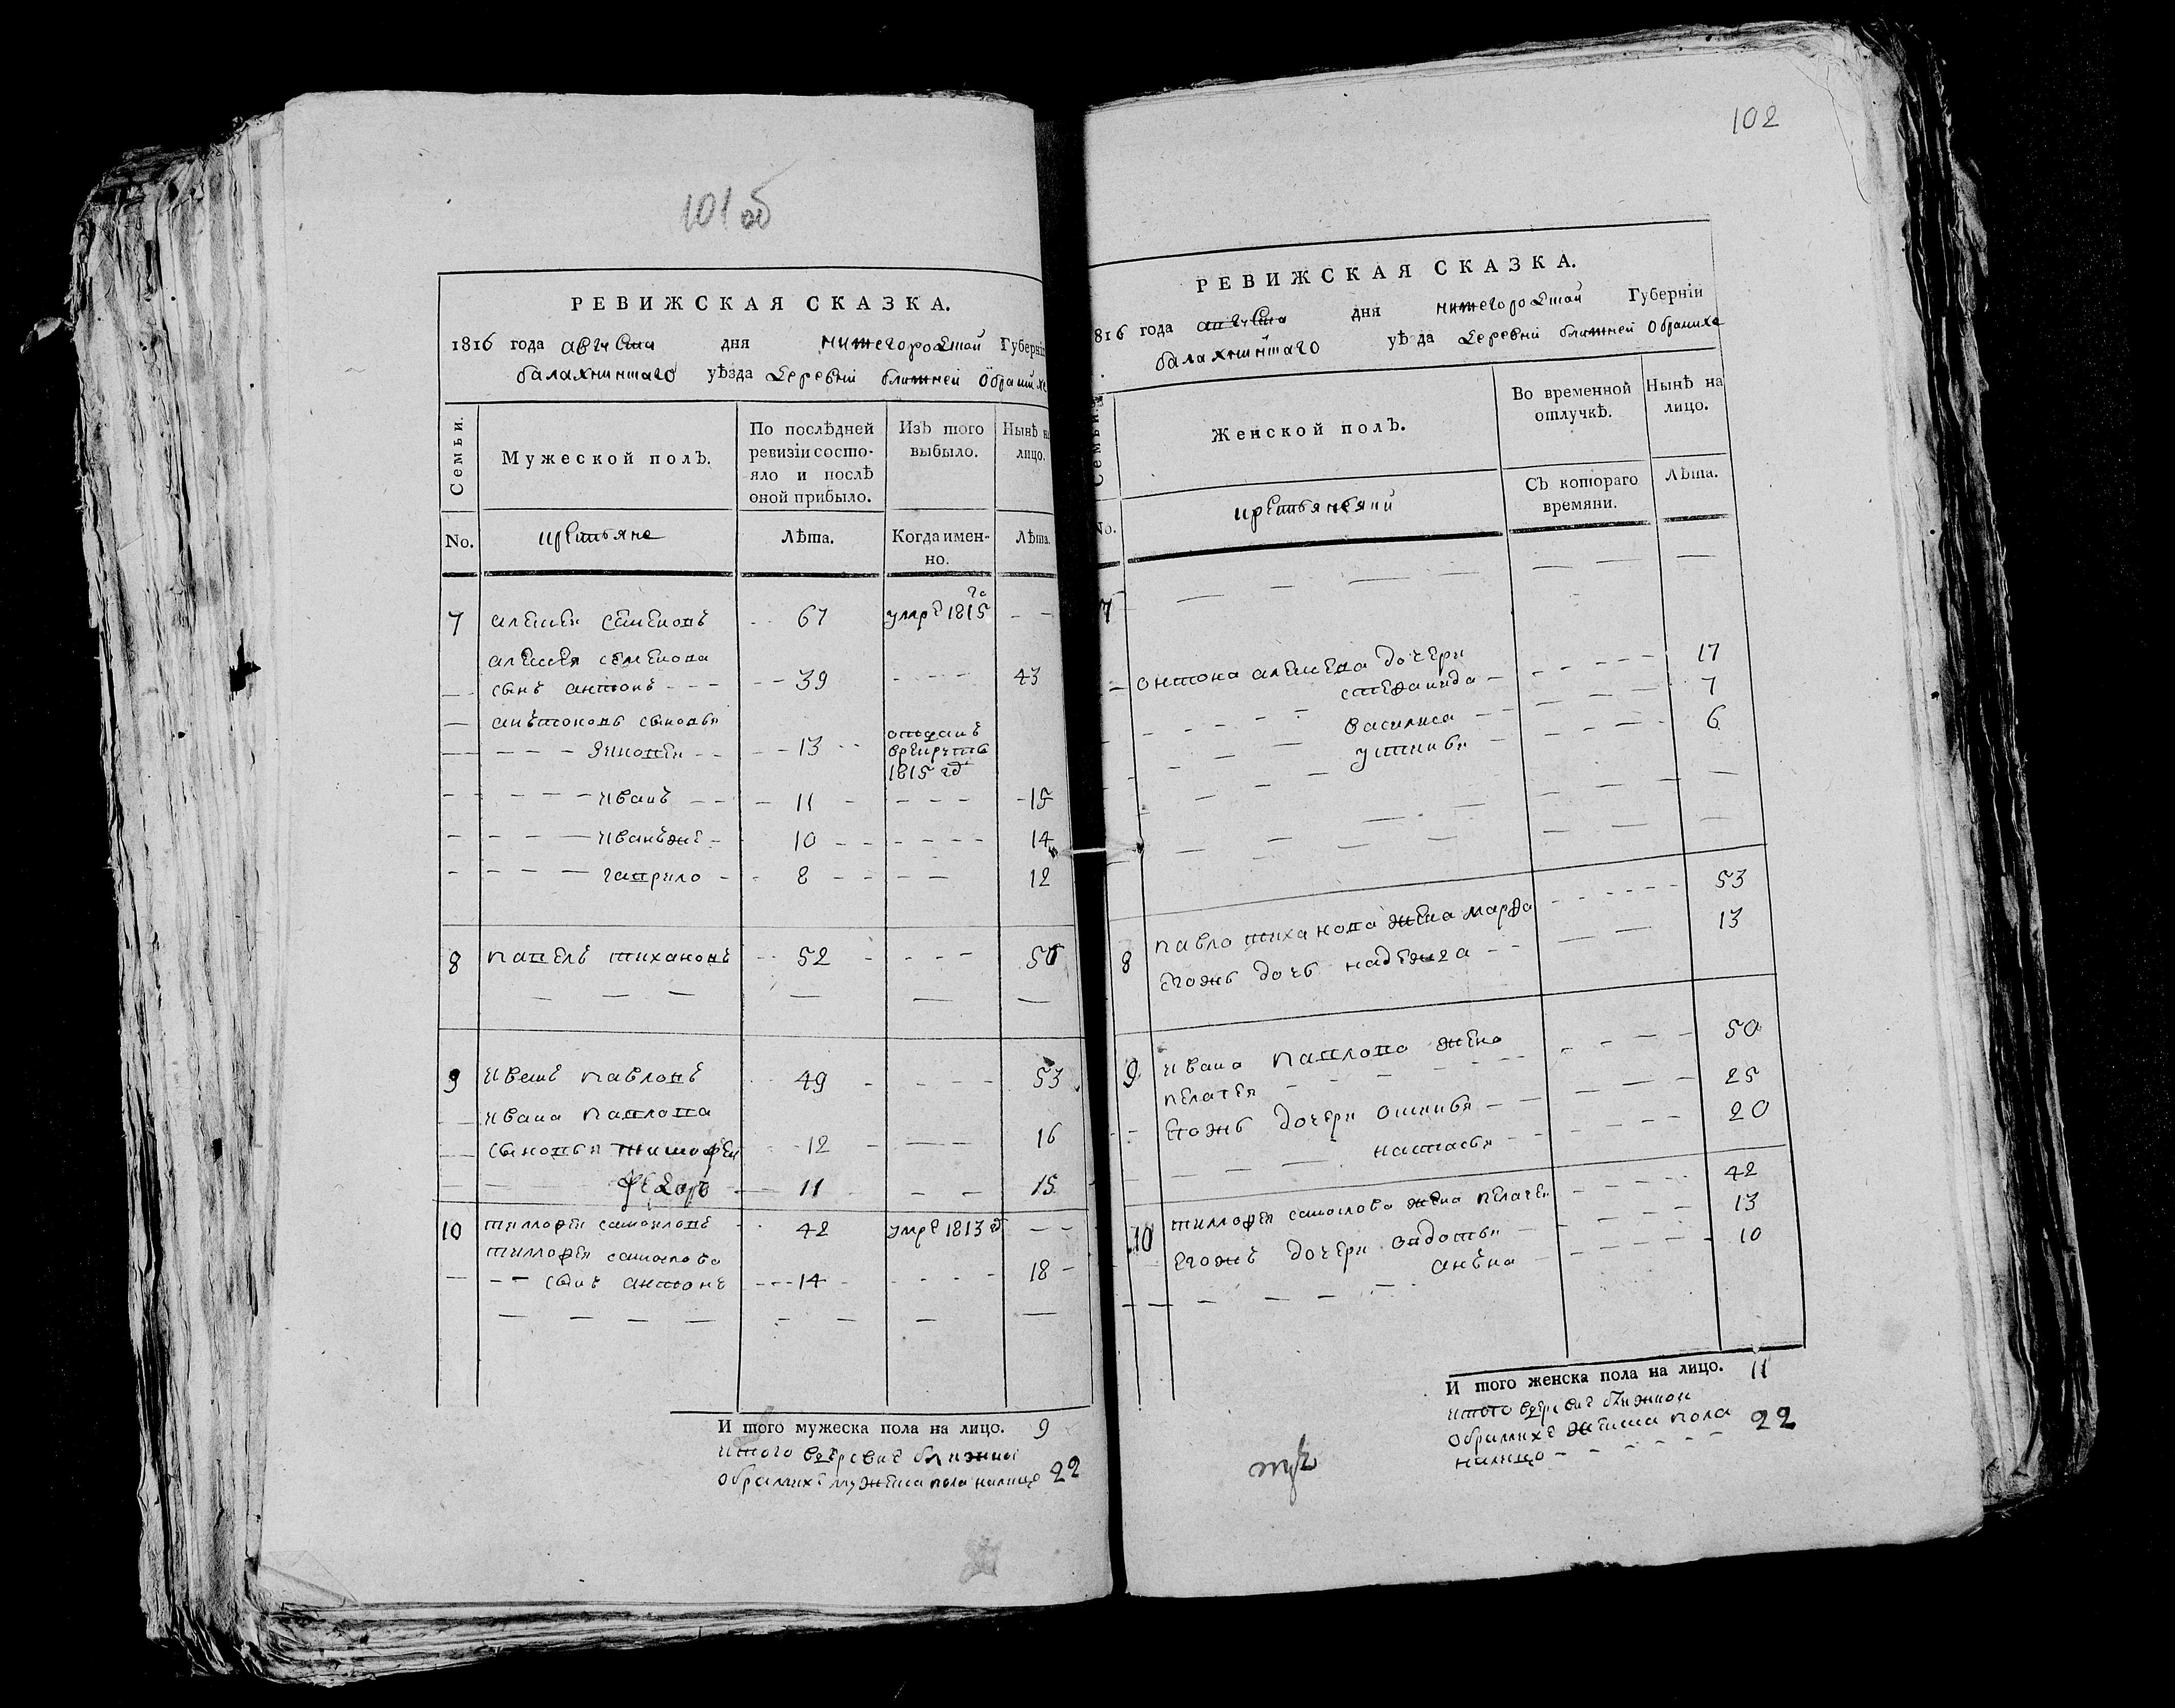 101 об
РЕВИЖСКАЯ СКАЗКА.
1816 года августа дня нижегородской Губерніи
балахнинскаго уѣзда деревни ближней Обрамихе
Семьи.
Мужеской полъ.
По послѣдней ревизіи состо-
яло и послѣ
оной прибыло.
Изъ того
выбыло.
Нынѣ на
лицо.
No. крестьяне Лѣта. Когда имен-
но. Лѣта.
7 алексеи семеновъ 67 умре 1815 го
алексея семенова
сынъ антонъ 39 43
антоновы сыновья
13 отданъ
врекруты
1815 год
иванъ 11 15
иванъже 10 14
гаврило 8 12
8 павелъ тихановъ 52
9 иванъ павловъ 49 53
ивана павлова
сыновья тимофеи 12 16
федоръ 11 15
10 тимофеи самоиловъ 42 умре 1813 г
тимофея самоилова
сынъ антонъ 14 18
И того мужеска пола на лицо. 9
итого вдеревне ближнеи
обрамихе мужеска пола налицо 22
102
РЕВИЖСКАЯ СКАЗКА.
1816 года августа дня нижегородской Губерніи
балахнинскаго уѣзда деревни ближней Обрамихе
Семьи.
Женской полъ.
Во временной
отлучкѣ.
Нынѣ на
лицо.
No. Съ котораго
времяни. Лѣта.
7
антона алексева дочери
степанида 17
василиса 7
устинья 6
8 павла тиханова жена марфа 53
егожъ дочь надежга 13
9 ивана павлова жена
пелагея 50
егожъ дочери 25
настасья 20
10 тимофея самоилова жена пелагея 42
егожъ дочери авдотья 13
анъна 10
И того женска пола на лицо. 11
итого вдеревне ближнеи
обрамихе женска пола
налицо 22